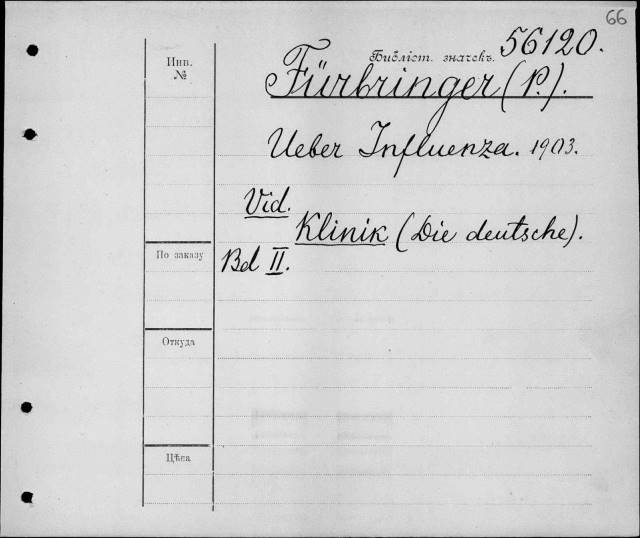 66
Библіот. значокъ. 56120.
Инв.
№
Fürbringer (P.).
Ueber Influenza. 1903.
Vid.
Klinik (Die deutsche).
По заказу
Bd II.
Откуда
Цѣна